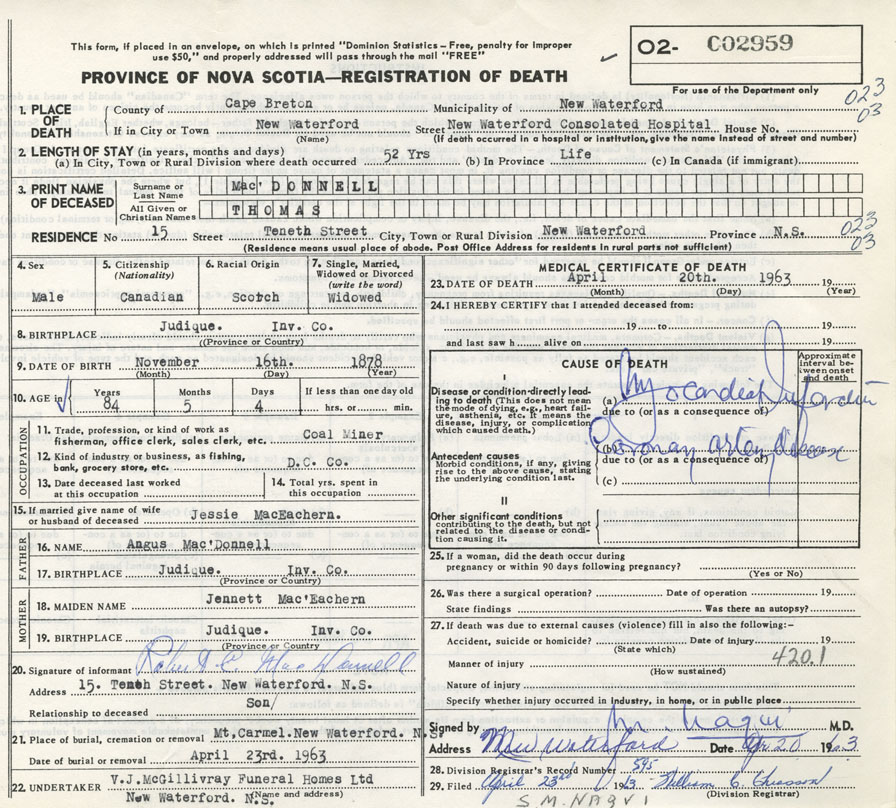 This form, if placed in an envelope, on which is printed "Dominion Statistics – Free, penalty for improper
use $50," and properly addressed will pass through the mail "FREE"
O2- C02959
PROVINCE OF NOVA SCOTIA—REGISTRATION OF DEATH
For use of the Department only
023
03
1. PLACE OF DEATH
County of Cape Breton Municipality of New Waterford
If in City or Town New Waterford Street New Waterford Consolated Hospital House No.
(Name) (If death occurred in a hospital or institution, give the name instead of street and number)
2. LENGTH OF STAY (in years, months and days)
(a) In City, Town or Rural Division where death occurred 52 Yrs (b) In Province Life (c) In Canada (if immigrant)
3. PRINT NAME OF DECEASED
Surname or Last Name Mac'DONNELL
All Given or Christian Names THOMAS
023
03
RESIDENCE No 15 Street Teneth Street City, Town or Rural Division New Waterford Province N.S.
(Residence means usual place of abode. Post Office Address for residents in rural parts not sufficient)
4. Sex Male
5. Citizenship (Nationality) Canadian
6. Racial Origin Scotch
7. Single, Married, Widowed or Divorced (write the word) Widowed
8. BIRTHPLACE Judique. Inv. Co.
(Province or Country)
9. DATE OF BIRTH November 16th. 1878
(Month) (Day) (Year)
10. AGE in Years 84 Months 5 Days 4 If less than one day old hrs. or min.
OCCUPATION
11. Trade, profession or kind of work as
fisherman, office clerk, sales clerk, etc. Coal Miner
12. Kind of industry or business, as fishing,
bank, grocery store, etc. D.C. Co.
13. Date deceased last worked
at this occupation
14. Total yrs. spent in
this occupation
15. If married give name of wife
or husband of deceased Jessie MacEachern.
FATHER
16. NAME Angus Mac'Donnell
17. BIRTHPLACE Judique. Inv. Co.
(Province or Country)
MOTHER
18. MAIDEN NAME Jennett Mac'Eachern
19. BIRTHPLACE Judique. Inv. Co.
(Province or Country)
20. Signature of informant Mac Donnell
Address 15. Tenth Street. New Waterford. N.S.
Relationship to deceased Son/
21. Place of burial, cremation or removal Mt,Carmel.New Waterford. N.S.
Date of burial or removal April 23rd. 1963
22. UNDERTAKER V.J.McGillivray Funeral Homes Ltd
(Name and address)
New Waterford. N.S.
MEDICAL CERTIFICATE OF DEATH
23. DATE OF DEATH April 20th. 1963 19
(Month) (Day) (Year)
24. I HEREBY CERTIFY that I attended deceased from:
19 to 19
and last saw h alive on 19
CAUSE OF DEATH
Approximate interval between onset and death
I
Disease or condition directly leading to death (This does not mean the mode of dying, e.g., heart failure, asthenia, etc. It means the disease, injury, or complication which caused death.)
(a) Myocardial Infarction
due to (or as a consequence of)
Antecedent causes
Morbid conditions, if any, giving rise to the above cause, stating the underlying condition last.
(b) Coronary artery disease
due to (or as a consequence of)
(c)
II
Other significant conditions
contributing to the death, but not related to the disease or condition causing it.
25. If a woman, did the death occur during
pregnancy or within 90 days following pregnancy?
(Yes or No)
26. Was there a surgical operation? Date of operation 19
State findings Was there an autopsy?
27. If death was due to external causes (violence) fill in also the following:–
Accident, suicide or homicide? Date of injury 19
(State which)
420.1
Manner of injury
(How sustained)
Nature of injury
Specify whether injury occurred in industry, in home, or in public place
Signed by Naqui M.D.
Address New Waterford Date Apr 20 1963
28. Division Registrar's Record Number 595
29. Filed April 23rd 1963 William C Chiasson
(Division Registrar)
S M. NAQVI